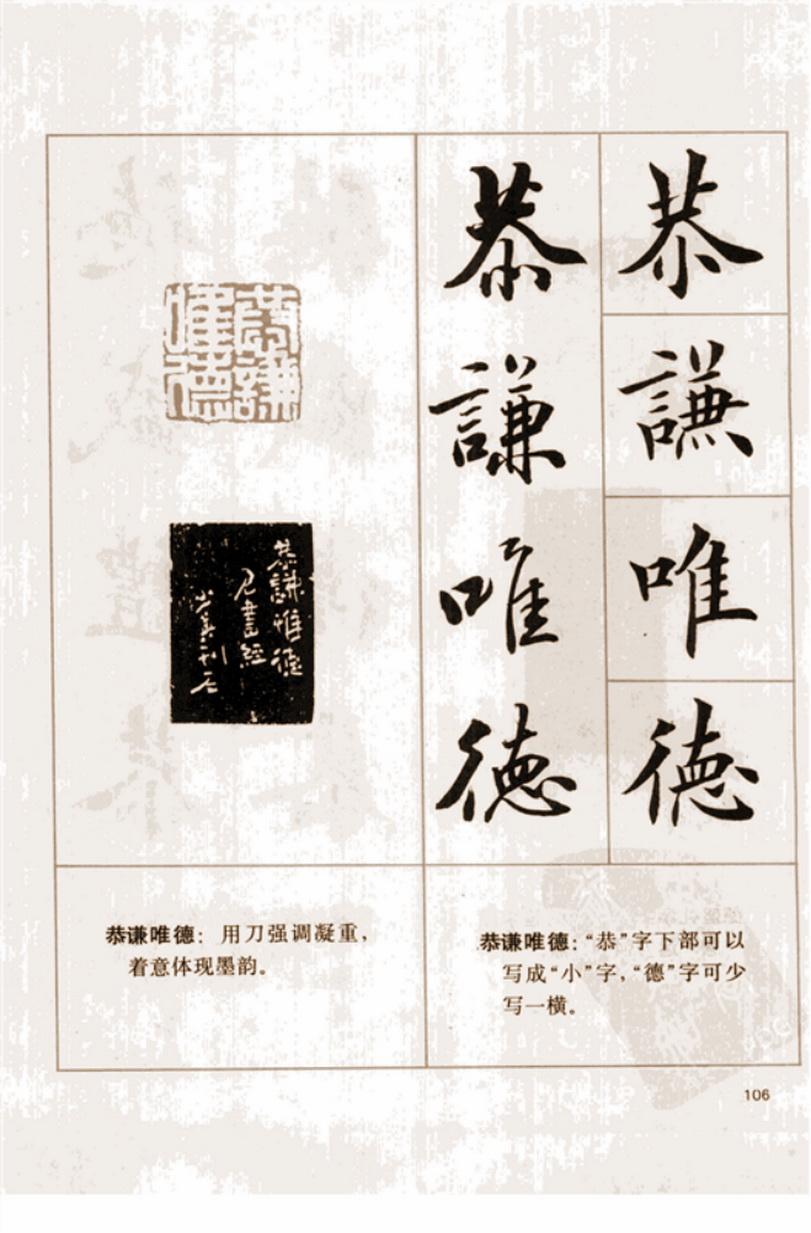 恭謙唯德
恭謙唯德
恭謙唯德
恭謙唯德
恭谦唯德：用刀强调凝重，
着意体现墨韵。
恭谦唯德：“恭”字下部可以
写成“小”字，“德”字可少
写一横。
106